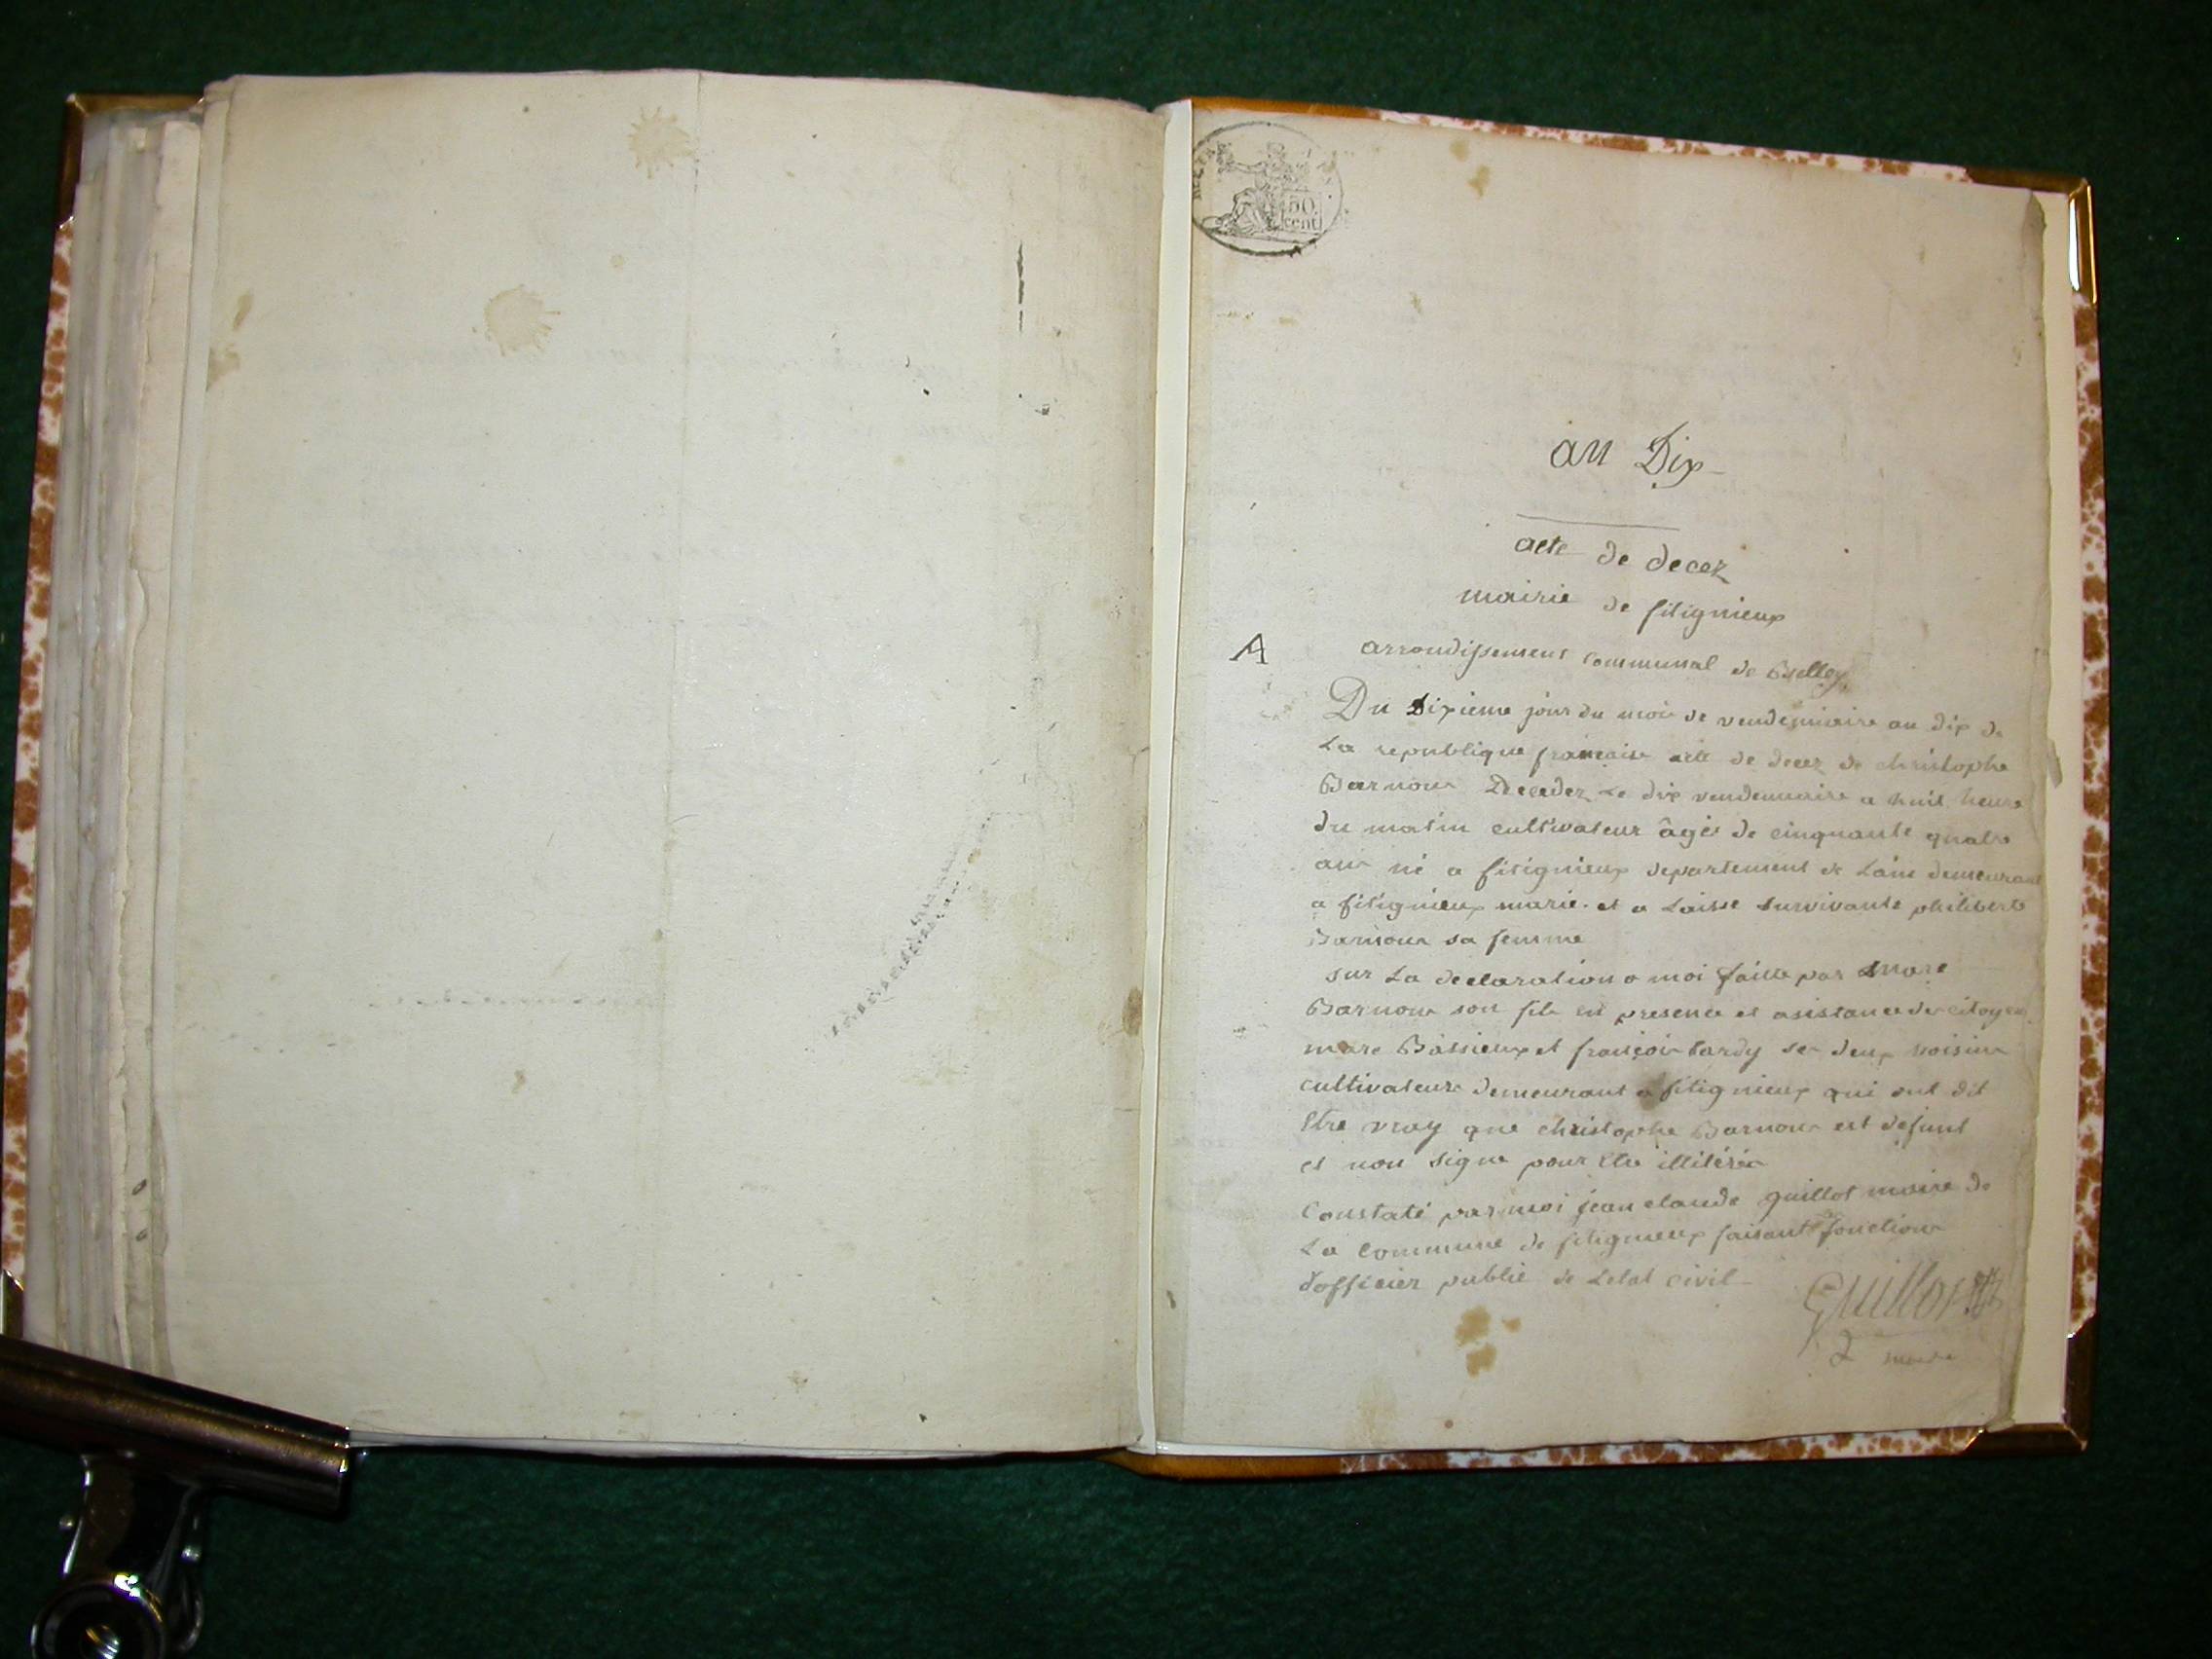 50
cent
an Dix
acte de decez
mairie de fitignieux
A
arrondissement communal de Belley
Du dixieme jour du mois de vendemiaire an dix de
La republique francaise acte de decez de christophe
Barnoux Decedez Le dix vendemiaire a huit heure
du matin cultivateur âgés de cinquante quatre
ans né a fitignieux departement de Lain demeurant
a fitignieux marié et a Laisse survivante philiberte
Barnoux sa femme
sur La declaration a moi faitte par marc
Barnoux son fils en presence et asistance de citoyen
marc Bassieux et françois tardy ses deux voisins
cultivateurs demeurant a fitignieux qui ont dit
Etre vray que christophe Barnoux est defunt
et non signe pour Etre illitérés
Constaté par moi jean claude guillot maire de
La commune de fitignieux faisant fonctions
dofficier public de Letat civil
Guillot
maire